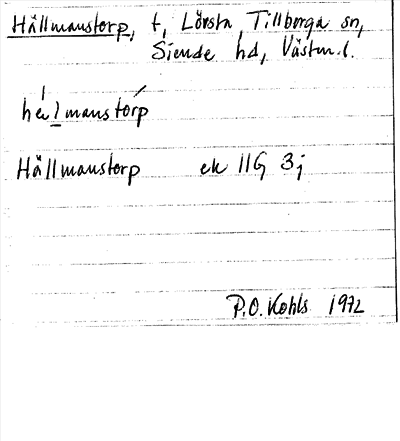 Hällmanstorp, t, Lövsta, Tillberga sn,
Siende hd, Västm.l.
hälmanstórp
Hällmanstorp ek 11G 3j
P.O. Kohls 1972